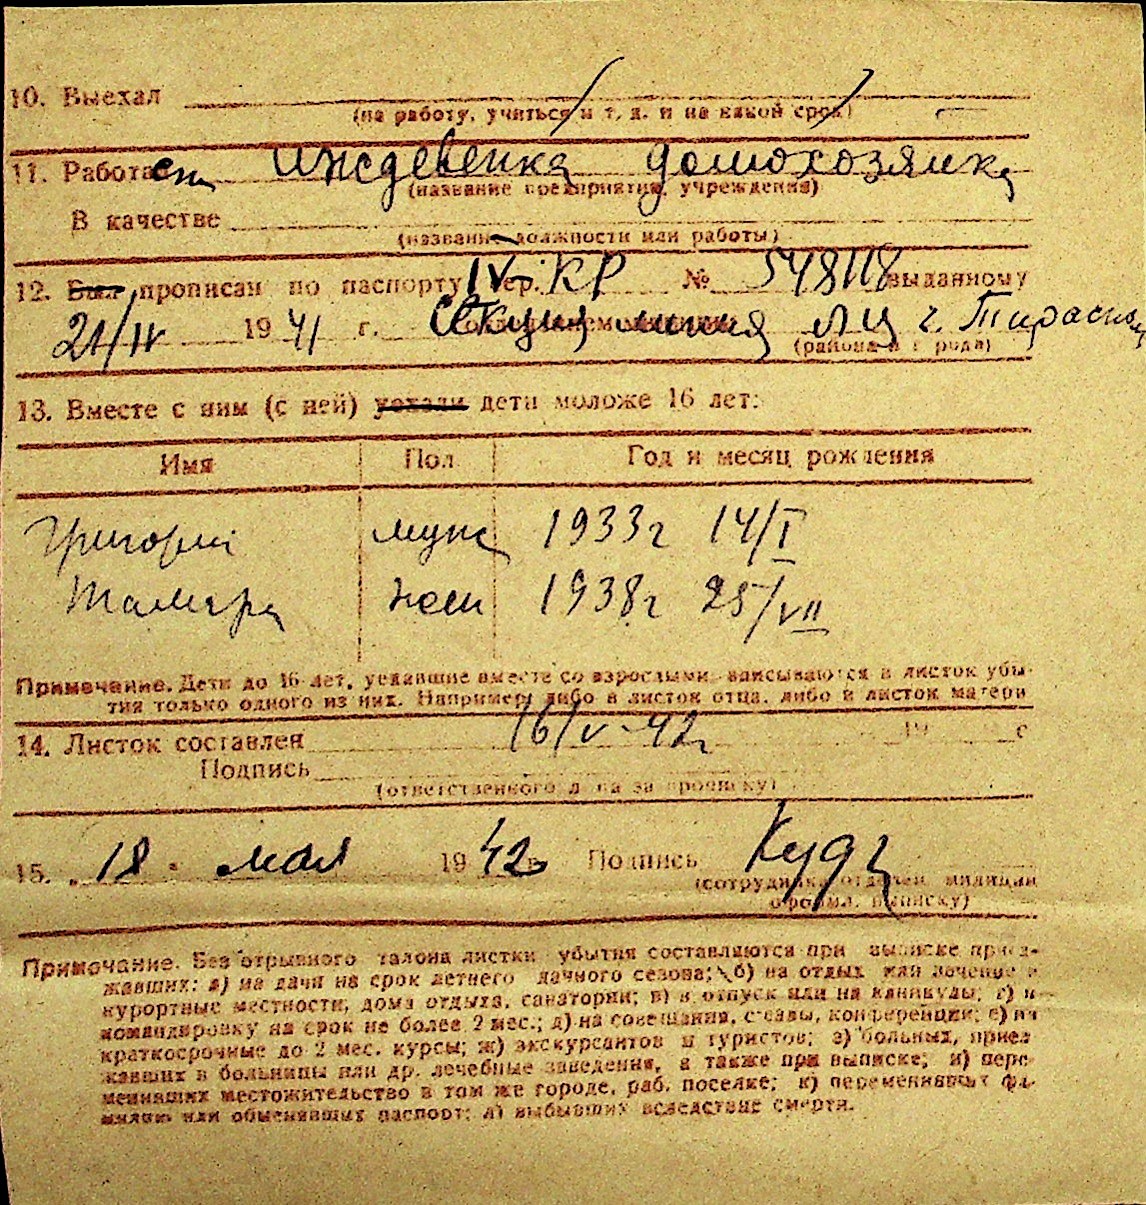 10. Выехал
(на работу, учиться и т. д. и на какой срок)
11. Работает иждевенка домохозяйка
(название предприятия, учреждения)
В качестве
(название должности или работы)
12. Был прописан по паспорту IV сер. КР № 548118 выданному
21/IV 19 41 г. г. Тирасполь
(района и города)
13. Вместе с ним (с ней) уехали дети моложе 16 лет:
Имя Пол Год и месяц рождения
Григорий муж 1933г 14/I
Тамара жен 1938г 25/VII
Примечание. Дети до 16 лет, уехавшие вместе со взрослыми, вписываются в листок убы-
тия только одного из них. Например, либо в листок отца, либо в листок матери
14. Листок составлен 16/V-42г 19 г
Подпись
(ответственного л-ца за прописку)
15. „ 18 " мая 19 42 г. Подпись Кудр
(сотрудника отделен. милиции
оформл. выписку)
Примечание. Без отрывного талона листки убытия составляются при выписке приез-
жавших: а) на дачи на срок летнего дачного сезона; б) на отдых или лечение в
курортные местности, дома отдыха, санатории; в) в отпуск или на каникулы; г) в
командировку на срок не более 2 мес.; д) на совещания, съезды, конференции; е) на
краткосрочные до 2 мес. курсы; ж) экскурсантов и туристов; з) больных, приез-
жавших в больницы или др. лечебные заведения, а также при выписке; и) пере-
менивших местожительство в том же городе, раб. поселке; к) переменивших фа-
милию или обменявших паспорт; л) выбывших вследствие смерти.